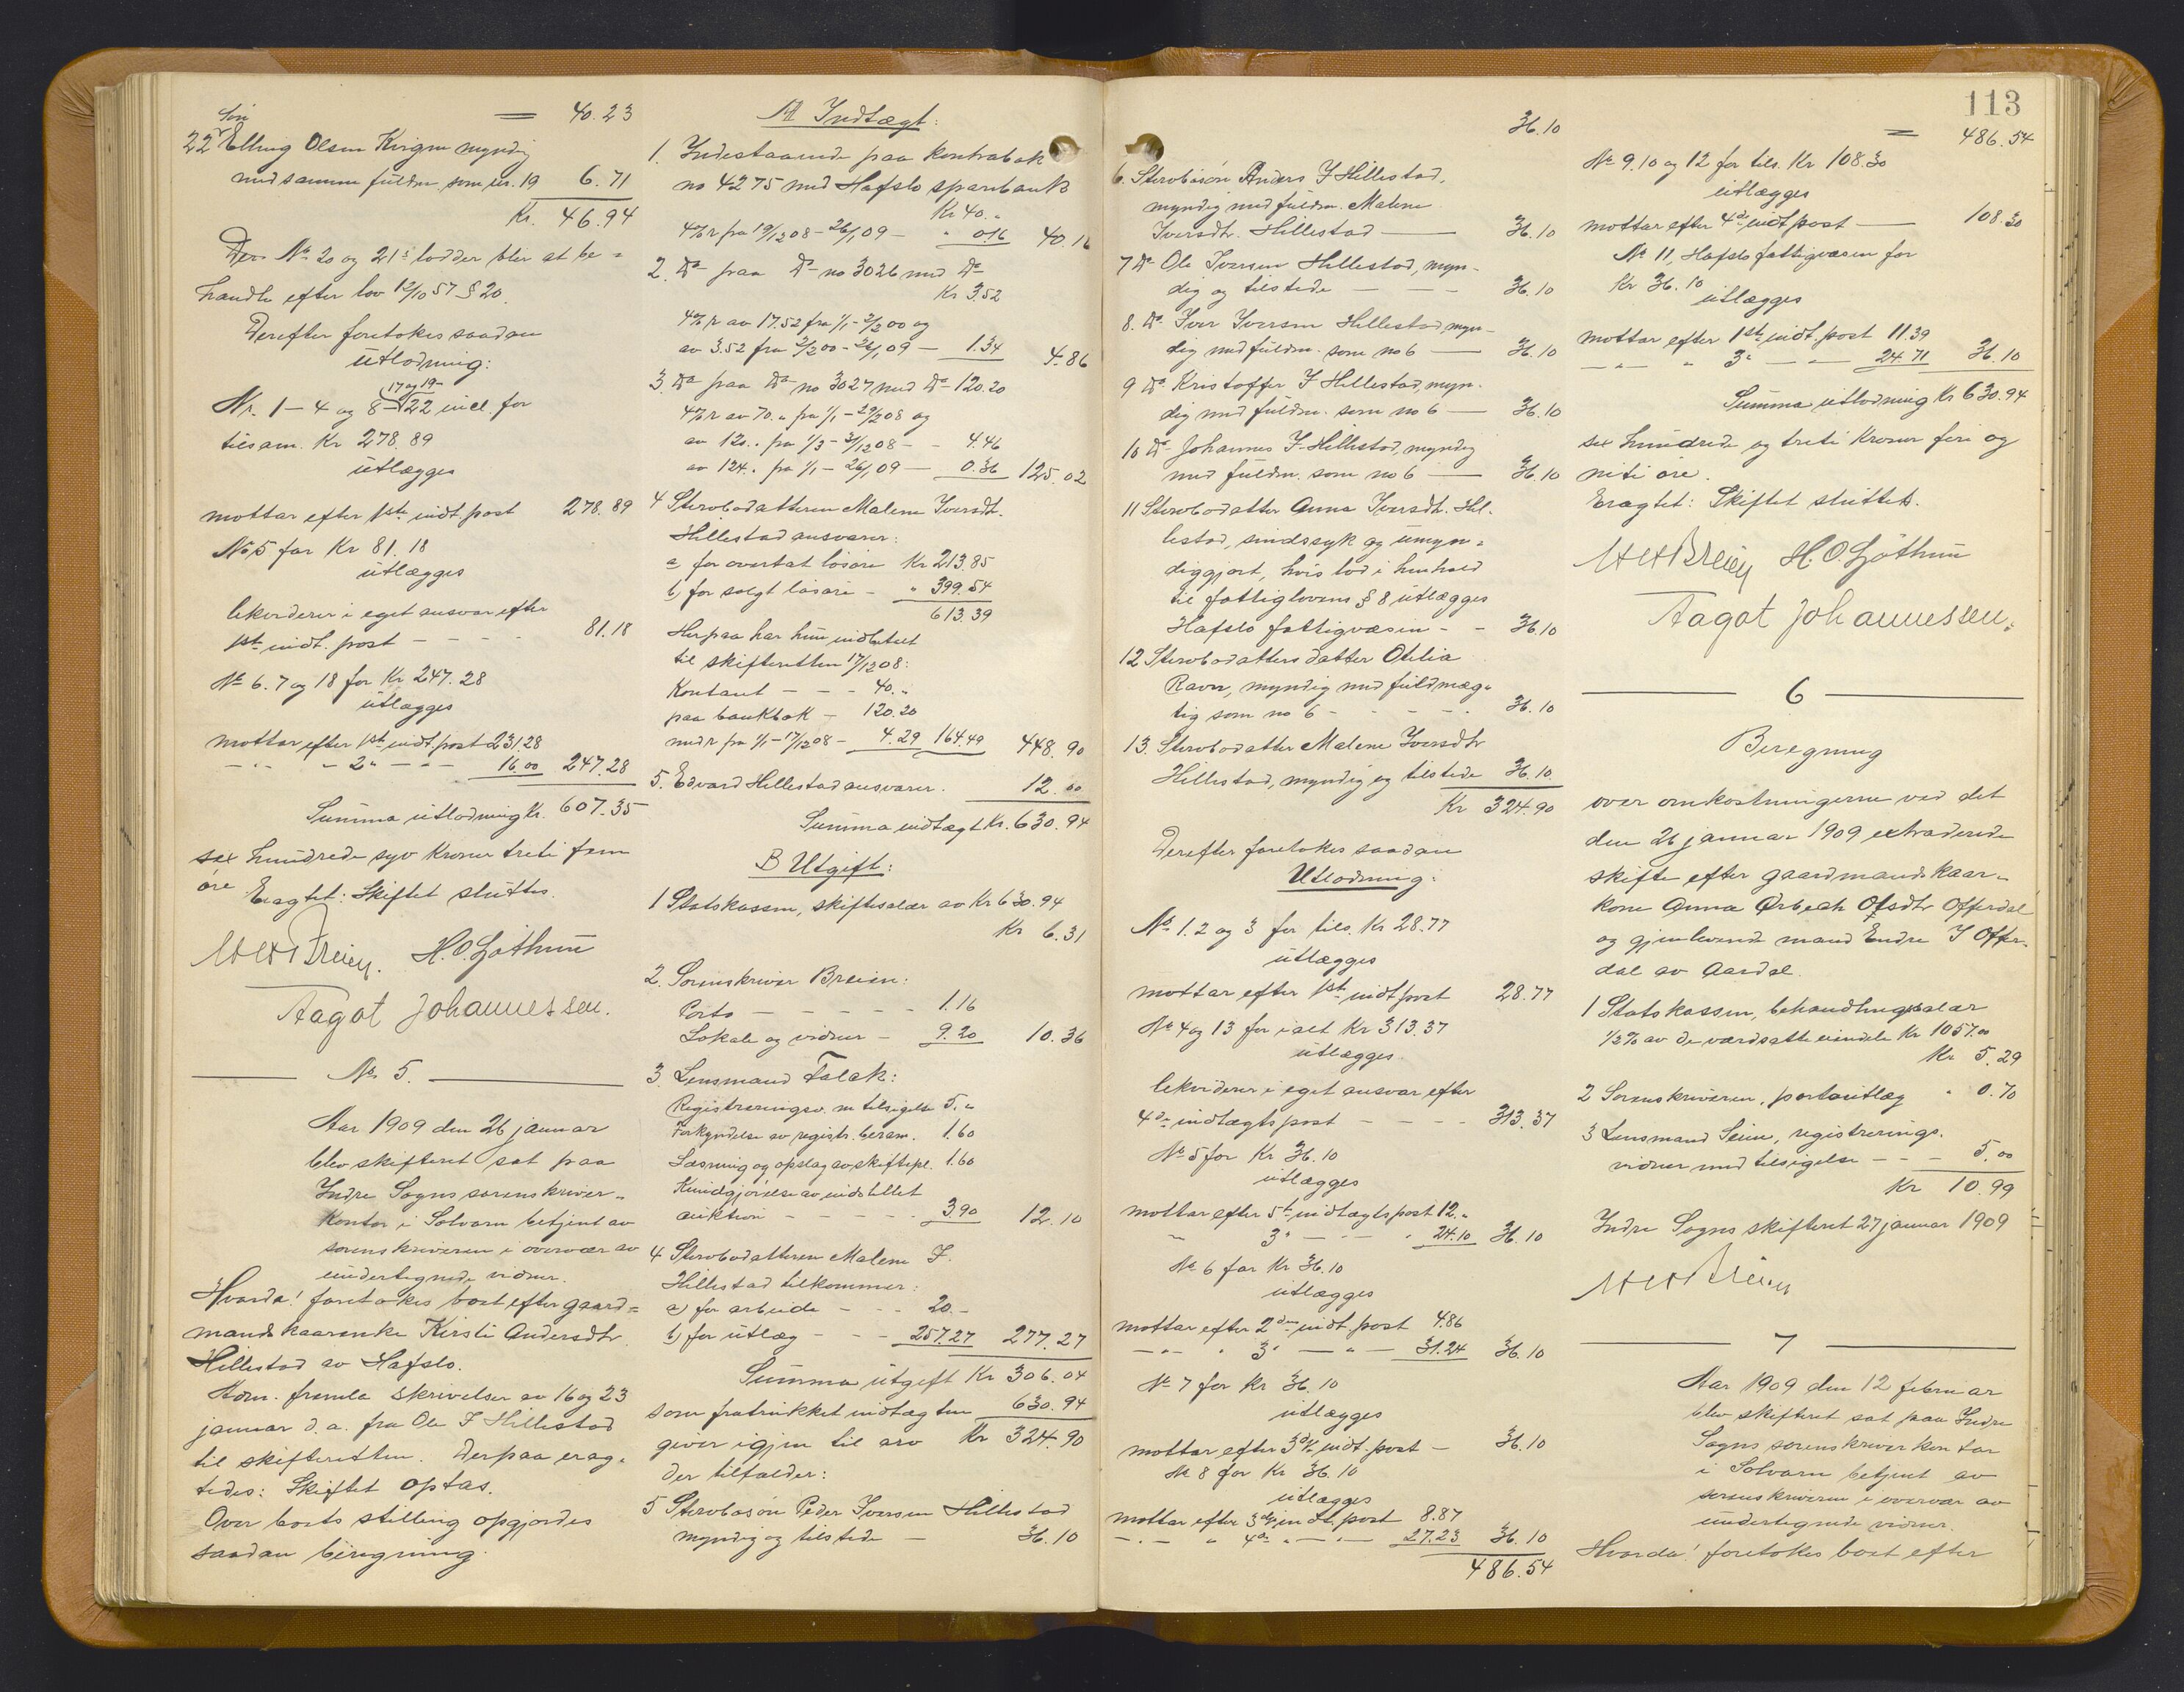 = 40.23
Søn
22 Elling Olsen Kirgen myndig
med samme fuldm. som nr. 19 6.71
Kr. 46.94
Den No 20 og 21s lodder blir at be=
handle efter lov 12/10 57 § 20.
Derefter foretokes saadan
utlodning:
17 og 19
Nr. 1-4 og 8-22 incl. for
tilsam. Kr 278.89
utlægges
mottar efter 1ste indt. post 278.89
No 5 for Kr 81.18
utlægges
likviderer i eget ansvar efter
1ste indt. post - - - - 81.18
No 6. 7 og 18 for Kr 247.28
utlægges
mottar efter 1ste indt. post 231.28
- " - " 2" - " - 16.00 247.28
Summa utlodning kr. 607.35
sex hundrede syv kroner treti fem
øre Eragtet: Skiftet sluttes.
H. O. Ljøthun
Aagot Johannessen.
No 5.
Aar 1909 den 26 januar
blev skifteret sat paa
Indre Sogns sorenskriver-
kontor i Solvorn betjent av
sorenskriveren i overvær av
undertegnede vidner.
Hvorda! foretokes boet efter gaard=
mandskaarenke Kirsti Andersdtr.
Hillestad av Hafslo.
Adm. fremla skrivelser av 16 og 23
januar d.a. fra Ole I Hillestad
til skifteretten. Derpaa erag-
tedes: Skiftet optas.
Over boets stilling opgjordes
saadan beregning.
A Indtægt:
1. Indestaaende paa kontrabok
no 4275 med Hafslo sparebank
Kr 40."
4% r fra 19/12 08 - 26/1 09 - " 0.16 40.16
2. Do paa Do no 3026 med Do
Kr 3.52
4% r av 17.52 fra 1/1 - 2/2 00 og
av 3.52 fra 2/2 00 - 26/1 09 - 1.34 4.86
3. Do paa Do no 3027 med Do 120.20
4% r av 70." fra 1/1 - 29/2 08 og
av 120." fra 1/3 - 31/12 08 - - 4.46
av 124." fra 1/1 - 26/1 09 - 0.36 125.02
4 Stervbodatteren Malene Iversdtr.
Hillestad ansvarer:
a for overtat løsøre Kr 213.85
b) for solgt løsøre - " 399.54
613.39
Herpaa har hun indbetalt
til skifteretten 17/12 08:
Kontant - - - 40."
paa bankbok - 120.20
med r fra 1/1 - 17/12 08 - 4.29 164.49 448.90
5. Edvard Hillestad ansvarer. 12.00
Summa indtægt Kr. 630.94
B Utgift:
1 Statskassen, skiftesalær av Kr 630.94
Kr 6.31
2. Sorenskriver Breien:
Porto - - - - - 1.16
Lokale og vidner - 9.20 10.36
3. Lensmand Falck:
Registreringsv. m tilsigelse 5."
Forkyndelse av registr. beram. 1.60
Læsning og opslag av skiftepl. 1.60
Kundgjørelse av indstillet
auktion - - - - - 3.90 12.10
4 Stervbodatteren Malene I.
Hillestad tilkommer:
a) for arbeide - - - 20.-
b) for utlæg - - - 257.27 277.27
Summa utgift Kr 306.04
som fratrukket indtægten 630.94
giver igjen til arv Kr 324.90
der tilfalder:
5 Stervbosøn Peder Iversen Hillestad
myndig og tilstede - 36.10
113
36.10
6. Stervbosøn Anders I Hillestad,
myndig med fuldm. Malene
Iversdtr. Hillestad - 36.10
7 Do Ole Iversen Hillestad, myn-
dig og tilstede - - - 36.10
8. Do Iver Iversen Hillestad myn-
dig med fuldm. som no 6 - 36.10
9 Do Kristoffer I Hillestad, myn-
dig med fuldm. som no 6 - 36.10
10 Do Johannes I. Hillestad, myndig
med fuldm. som no 6 - 36.10
11 Stervbodatter Anna Iversdtr. Hil-
lestad, sindssyk og umyn-
diggjort, hvis lod i henhold
til fattiglovens § 8 utlægges
Hafslo fattigvæsen - - 36.10
12 Stervbodatters datter Otilia
Ravn, myndig med fuldmæg-
tig som no 6 - - - - 36.10
13. Stervbodatter Malene Iversdtr
Hillestad, myndig og tilstede 36.10
Kr 324.90
Derefter foretokes saadan
Utlodning:
No 1. 2 og 3 for tils. Kr 28.77
utlægges
mottar efter 1ste indt post 28.77
No 4 og 13 for ialt Kr 313.37
utlægges
likviderer i eget ansvar efter
4de indtægtspost - - - - 313.37
No 5 for Kr 36.10
utlægges
mottar efter 5te indtægtspost 12."
" 3" - - - " 24.10 36.10
No 6 for Kr 36.10
utlægges
mottar efter 2den indt post 4.86
- " - " 3" - " - 31.24 36.10
No 7 for Kr 36.10
utlægges
mottar efter 3dje indt. post - 36.10
No 8 for Kr 36.10
utlægges
mottar efter 3dje indt. post 8.87
- " - " 4de " - " - 27.23 36.10
486.54
= 486.54
No 9. 10 og 12 for tils. Kr 108.30
utlægges
mottar efter 4de indt post - 108.30
No 11, Hafslo fattigvæsen for
Kr 36.10
utlægges
mottar efter 1ste indt. post 11.39
- " - " 3" - " - 24.71 36.10
Summa utlodning Kr 630.94
sex hundrede og treti kroner fire og
niti øre.
Eragtet: Skiftet sluttet.
H. O. Ljøthun
Aagot Johannessen.
6
Beregning
over omkostningerne ved det
den 26 januar 1909 extraderede
skifte efter gaardmandskaar-
kone Anna Ørbech Olsdtr Offerdal
og gjenlevende mand Endre I Offer-
dal av Aardal.
1 Statskassen, behandlingssalær
1/2 % av de værdsatte eiendele Kr 1057.00
Kr 5.29
2 Sorenskriveren, portoutlæg " 0.70
3 Lensmand Seim, registrerings-
vidner med tilsigelse - - - 5.00
Kr 10.99
Indre Sogns skifteret 27 januar 1909
7
Aar 1909 den 12 februar
blev skifteret sat paa Indre
Sogns sorenskriverkontor
i Solvorn betjent av
sorenskriveren i overvær av
undertegnede vidner.
Hvorda! foretokes boet efter